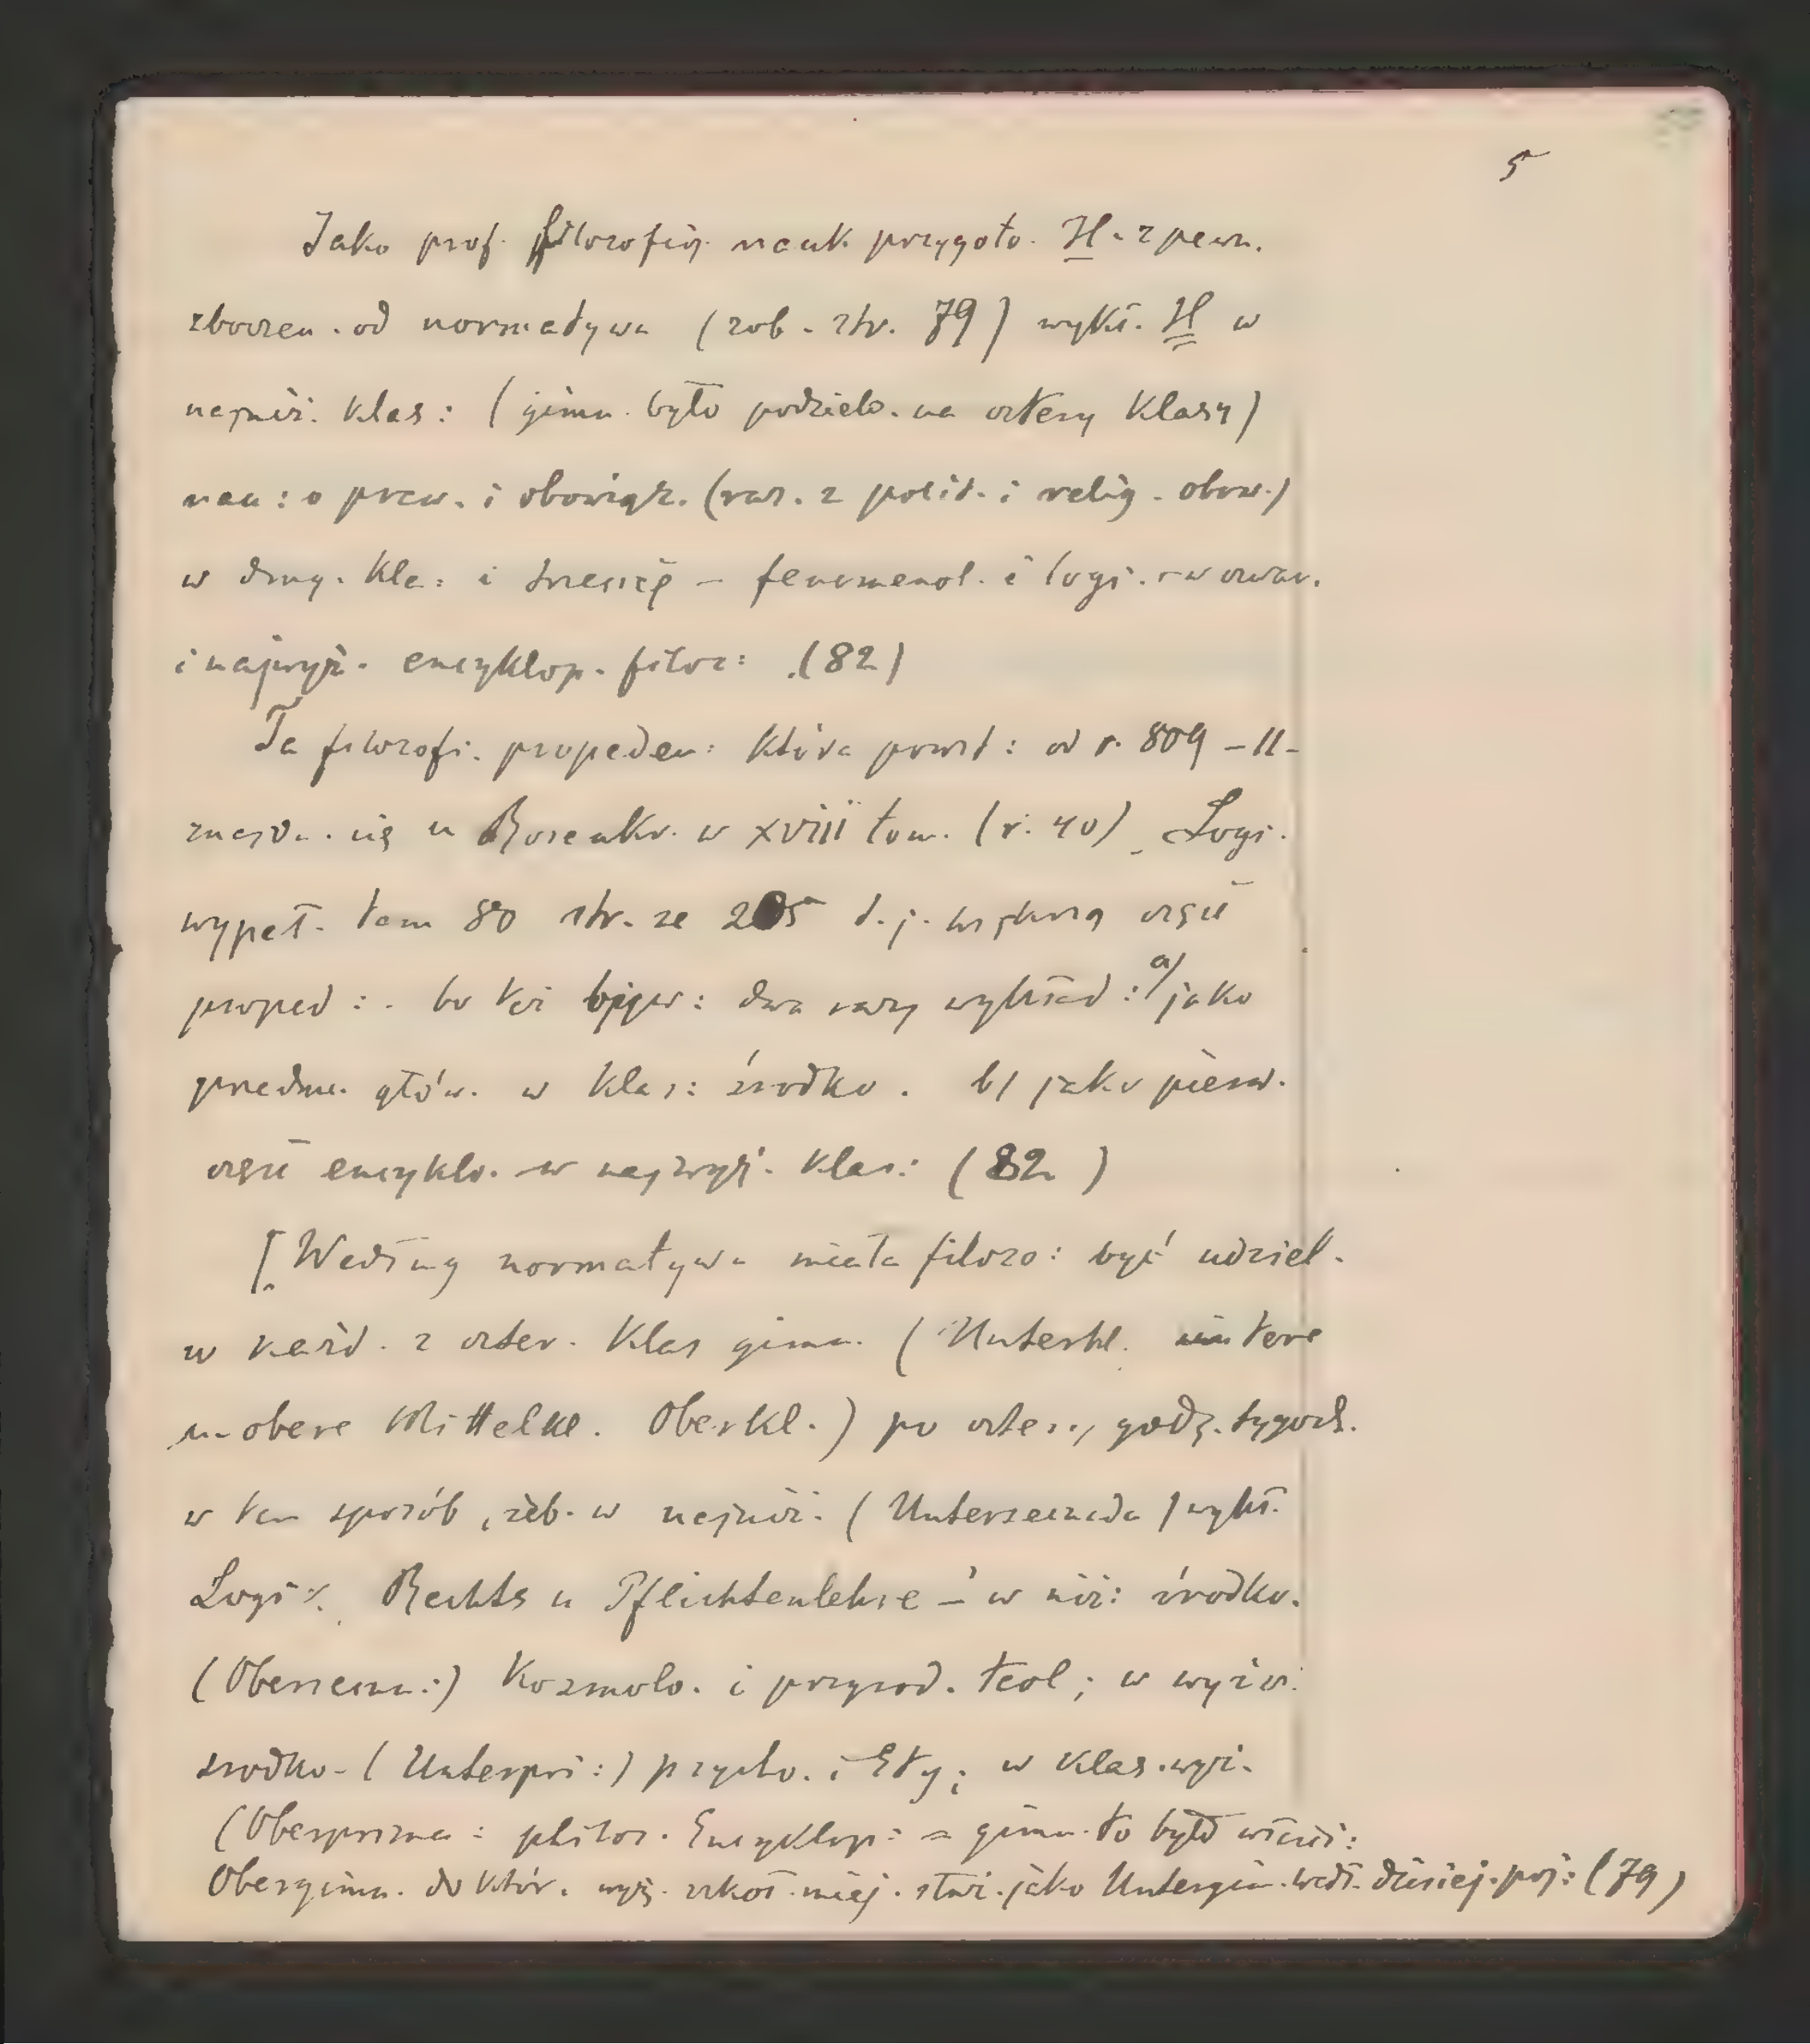 5
Jako prof. filozofiq. nauk przygoto. H. z pewn.
zboczen. od normatywu (zob. str. 79) wykł. H w
najniż. klas: (gimn. było podzielo. na cztery klasy)
nau: o praw. i obowiąz. (raz. z polit. i relig. obow.)
w drug. kla: i trzeciej – fenomenol. i logi. – w czwar.
i najwyż. encyklop. filoz: (82)
Ta filozofi. propedeu: która powst: od r. 809 – 11 –
znajdu. się u Rosenkr. w XVIII tom. (r. 40). Logi.
wypeł. tam 80 str. ze 205 t. j. większą część
proped: . bo też była: dwa razy wykład: a) jako
przedm. głów. w klas: środko. b) jako pierw.
część encyklo. w najwyż. klas: (82)
[Według normatywu miała filozo: być udziel.
w każd. z czter. klas gimn. (Unterkl. untere
u. obere Mittelkl. Oberkl.) po cztery godz. tygod.
w ten sposób, żeb. w najniż. (Untersecunda) wykł.
Logi: Rechts u Pflichtenlehre – w niż: środko.
(Obersecun:) Kozmolo. i przyrod. teol; w wyższ:
środko. (Unterpri:) psycho. i Ety; w klas. wyż.
(Oberprima: philos. Encyklop: – gimn. to było właści:
Obergimn. do któr. wyż. szkoł. miej. stał. jako Untergim. wedł. dzisiej. poj: (79)